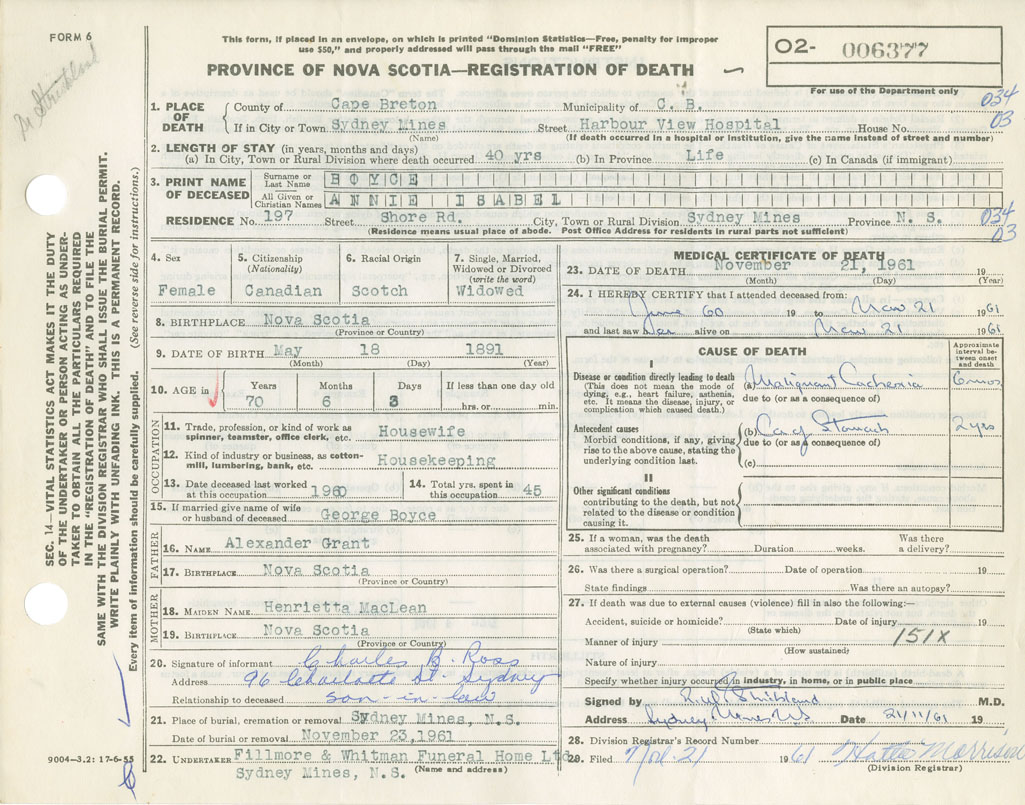 FORM 6
Dr Strickland
This form, if placed in an envelope, on which is printed "Dominion Statistics—Free, penalty for improper
use $50," and properly addressed will pass through the mail "FREE"
PROVINCE OF NOVA SCOTIA—REGISTRATION OF DEATH
O2- 006377
For use of the Department only
034
03
SEC. 14—VITAL STATISTICS ACT MAKES IT THE DUTY
OF THE UNDERTAKER OR PERSON ACTING AS UNDER-
TAKER TO OBTAIN ALL THE PARTICULARS REQUIRED
IN THE "REGISTRATION OF DEATH" AND TO FILE THE
SAME WITH THE DIVISION REGISTRAR WHO SHALL ISSUE THE BURIAL PERMIT.
WRITE PLAINLY WITH UNFADING INK. THIS IS A PERMANENT RECORD.
Every item of information should be carefully supplied. (See reverse side for instructions.)
1. PLACE OF DEATH County of Cape Breton Municipality of C. B.
If in City or Town Sydney Mines Street Harbour View Hospital House No.
(Name) (If death occurred in a hospital or institution, give the name instead of street and number)
2. LENGTH OF STAY (in years, months and days)
(a) In City, Town or Rural Division where death occurred 40 yrs (b) In Province Life (c) In Canada (if immigrant)
3. PRINT NAME OF DECEASED Surname or Last Name BOYCE
All Given or Christian Names ANNIE ISABEL
RESIDENCE No. 197 Street Shore Rd. City, Town or Rural Division Sydney Mines Province N. S.
034
03
(Residence means usual place of abode. Post Office Address for residents in rural parts not sufficient)
4. Sex Female
5. Citizenship (Nationality) Canadian
6. Racial Origin Scotch
7. Single, Married, Widowed or Divorced (write the word) Widowed
8. BIRTHPLACE Nova Scotia
(Province or Country)
9. DATE OF BIRTH May 18 1891
(Month) (Day) (Year)
10. AGE in Years 70 Months 6 Days 3 If less than one day old hrs. or min.
OCCUPATION
11. Trade, profession, or kind of work as spinner, teamster, office clerk, etc. Housewife
12. Kind of industry or business, as cotton-mill, lumbering, bank, etc. Housekeeping
13. Date deceased last worked at this occupation 1960 14. Total yrs. spent in this occupation 45
15. If married give name of wife or husband of deceased George Boyce
FATHER
16. NAME Alexander Grant
17. BIRTHPLACE Nova Scotia
(Province or Country)
MOTHER
18. MAIDEN NAME Henrietta MacLean
19. BIRTHPLACE Nova Scotia
(Province or Country)
20. Signature of informant Charles B. Ross
Address 96 Charlotte St. Sydney
Relationship to deceased son-in-law
21. Place of burial, cremation or removal Sydney Mines, N.S.
Date of burial or removal November 23,1961
22. UNDERTAKER Fillmore & Whitman Funeral Home Ltd
Sydney Mines, N.S. (Name and address)
9004—3.2: 17-6-55
MEDICAL CERTIFICATE OF DEATH
23. DATE OF DEATH November 21, 1961 19
(Month) (Day) (Year)
24. I HEREBY CERTIFY that I attended deceased from:
June 60 19 to Nov 21 1961
and last saw her alive on Nov 21 1961
CAUSE OF DEATH
Approximate interval between onset and death
I
Disease or condition directly leading to death
(This does not mean the mode of dying, e.g., heart failure, asthenia, etc. It means the disease, injury, or complication which caused death.)
(a) Malignant Cachexia 6 mos
due to (or as a consequence of)
Antecedent causes
Morbid conditions, if any, giving rise to the above cause, stating the underlying condition last.
(b) Ca of Stomach 2 yrs
due to (or as a consequence of)
(c)
II
Other significant conditions
contributing to the death, but not related to the disease or condition causing it.
25. If a woman, was the death associated with pregnancy? Duration weeks. Was there a delivery?
26. Was there a surgical operation? Date of operation 19
State findings Was there an autopsy?
27. If death was due to external causes (violence) fill in also the following:—
Accident, suicide or homicide? Date of injury 19
(State which)
Manner of injury 151X
(How sustained)
Nature of injury
Specify whether injury occurred in industry, in home, or in public place
Signed by Strickland M.D.
Address Sydney Mines NS Date 21/11/61 19
28. Division Registrar's Record Number
29. Filed Nov. 21 1961 Hattie Morrison
(Division Registrar)